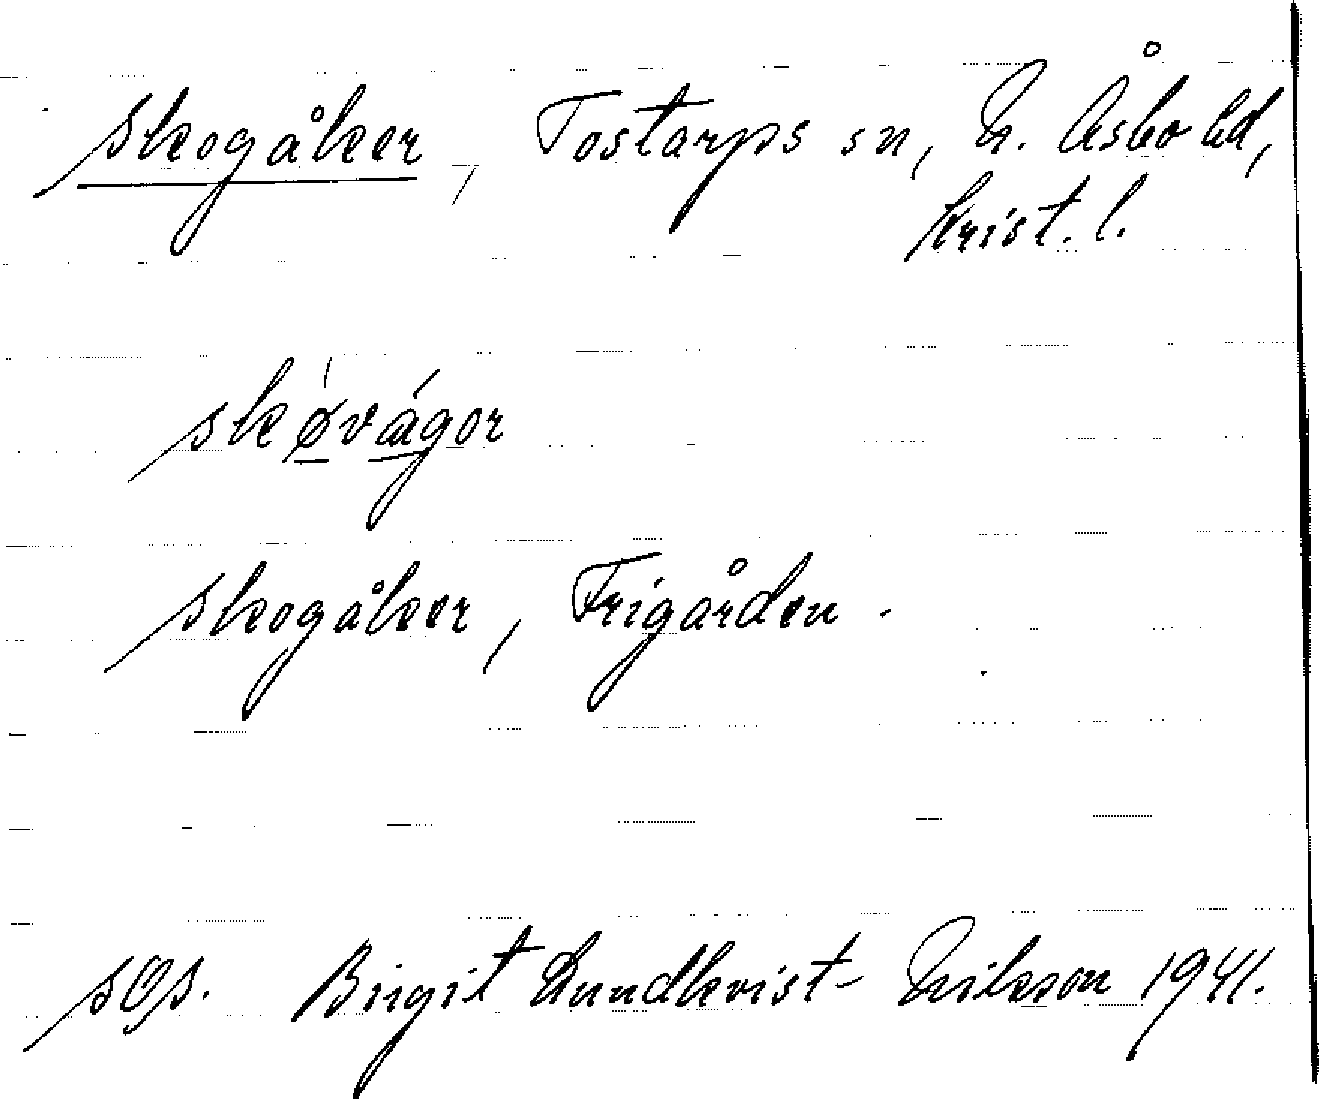 Skogåker, Tostarps sn, N. Åsbo hd,
Krist. l.
skøvágor
Skogåker, Frigården.
sOs. Birgit Lundkvist-Nilsson 1941.